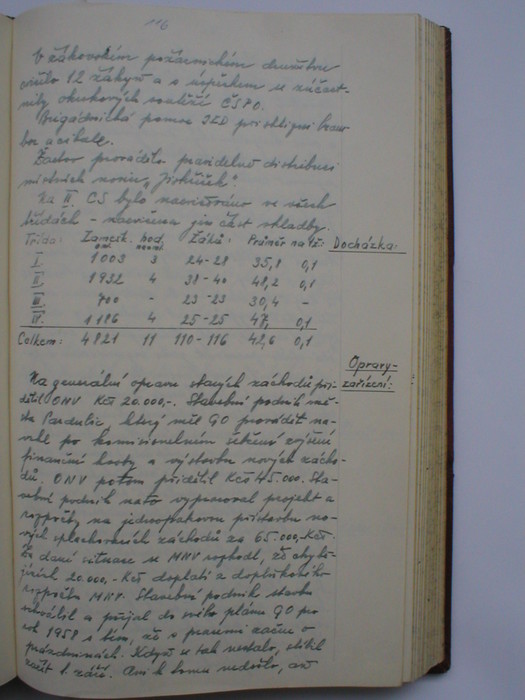 116
V žákovském požárnickém družstvu
cvičilo 12 žákyň a s úspěchem se zúčast-
nily okrskových soutěží ČSPO.
Brigádnická pomoc JZD při sklizni bram-
bor a cibule.
Žactvo provádělo pravidelně distribuci
místních novin "Jiskřiček".
Na II. CS bylo navštěvováno ve všech
třídách - nacvičena jim část skladby.
Třída: Zamešk. hod. Žáků: Průměr na 1ž: Docházka:
oml. neoml.
I. 1003 3 24-28 35,8 0,1
II. 1932 4 38-40 48,2 0,1
III. 700 - 23-23 30,4 -
IV. 1186 4 25-25 47, 0,1
Celkem: 4821 11 110-116 42,6 0,1
Opravy-
zařízení:
Na generální opravu starých záchodů při-
dělil ONV Kčs 20.000,-. Stavební podnik mě-
sta Pardubic, který měl GO provádět na-
vrhl po komisionelním šetření zvýšení
finanční kvoty a výstavbu nových zácho-
dů. ONV potom přidělil Kčs 45.000. Sta-
vební podnik nato vypracoval projekt a
rozpočty na jednopatrovou přístavbu no-
vých splachovacích záchodů za 65.000,-Kčs.
Za dané situace se MNV rozhodl, že chybě-
jících 20.000,- Kčs doplatí z doplňkového
rozpočtu MNV. Stavební podnik stavbu
schválil a přijal do svého plánu GO pro
rok 1958 s tím, že s pracemi začne o
prázdninách. Když se tak nestalo, slíbil
začít 1. září. Ani k tomu nedošlo, až